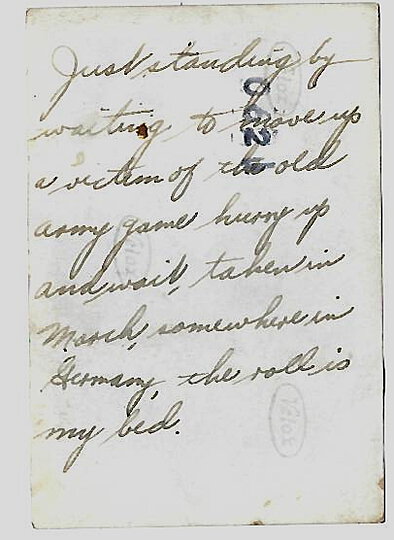 Just standing by
waiting to move up
a victim of the old
army game hurry up
and wait, taken in
March, somewhere in
Germany, the roll is
my bed.
Velox
Velox
Velox